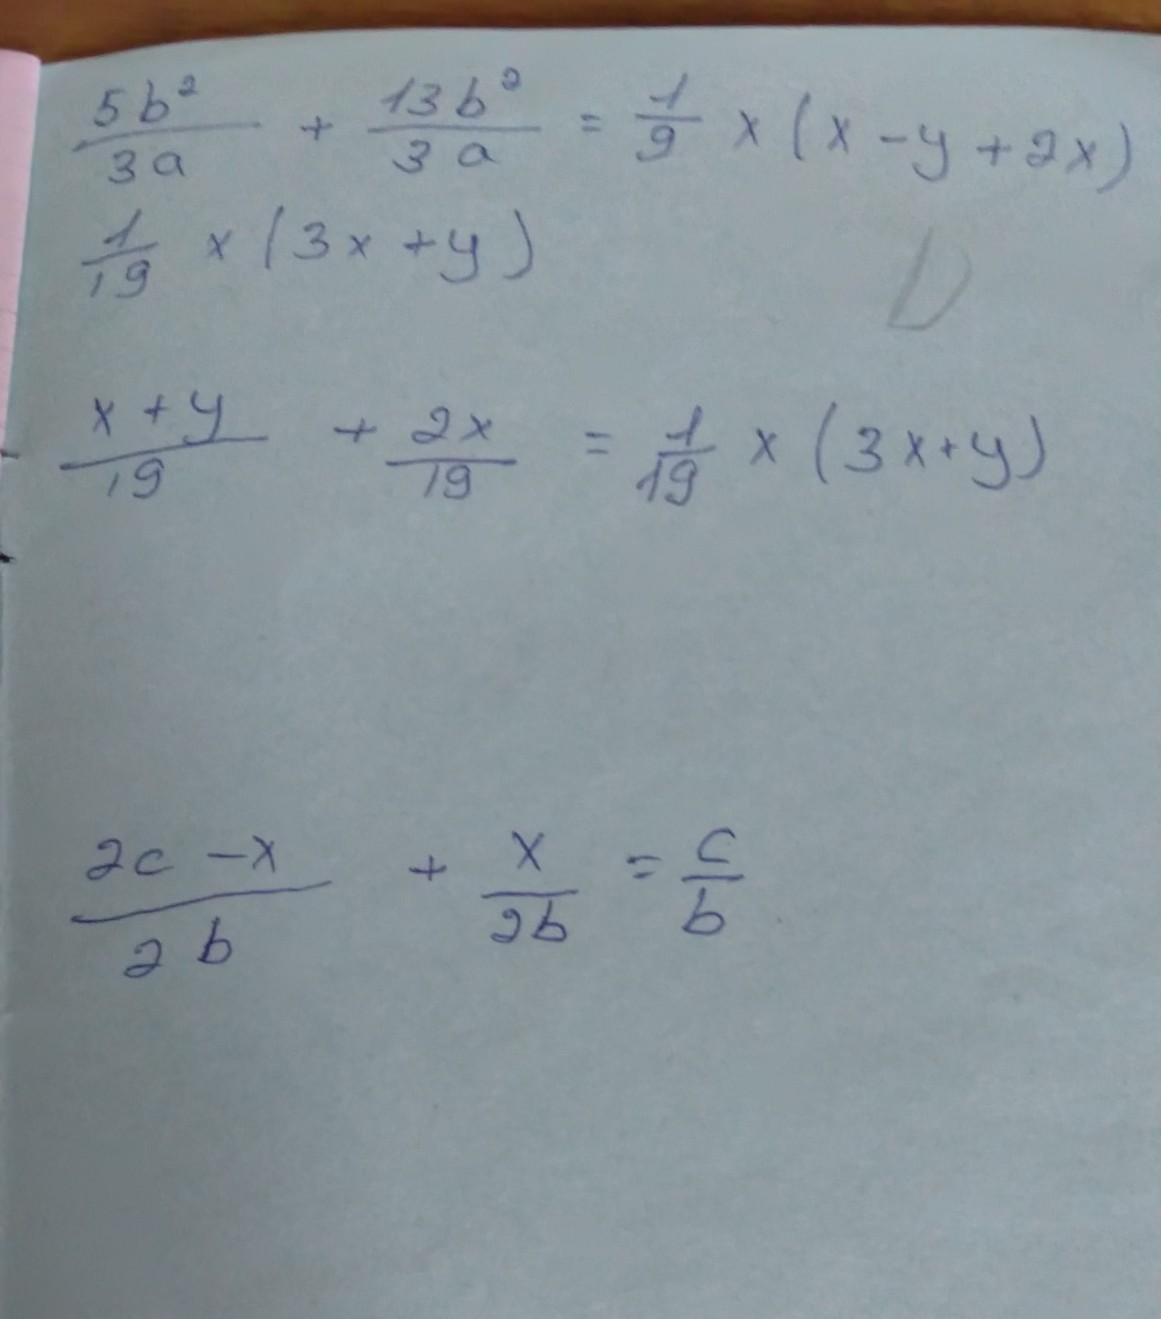 5b²/3a + 13b²/3a = 1/9 x (x - y + 2x)
1/19 x (3x + y)
D
x + y/19 + 2x/19 = 1/19 x (3x + y)
2c - x/2b + x/2b = c/b